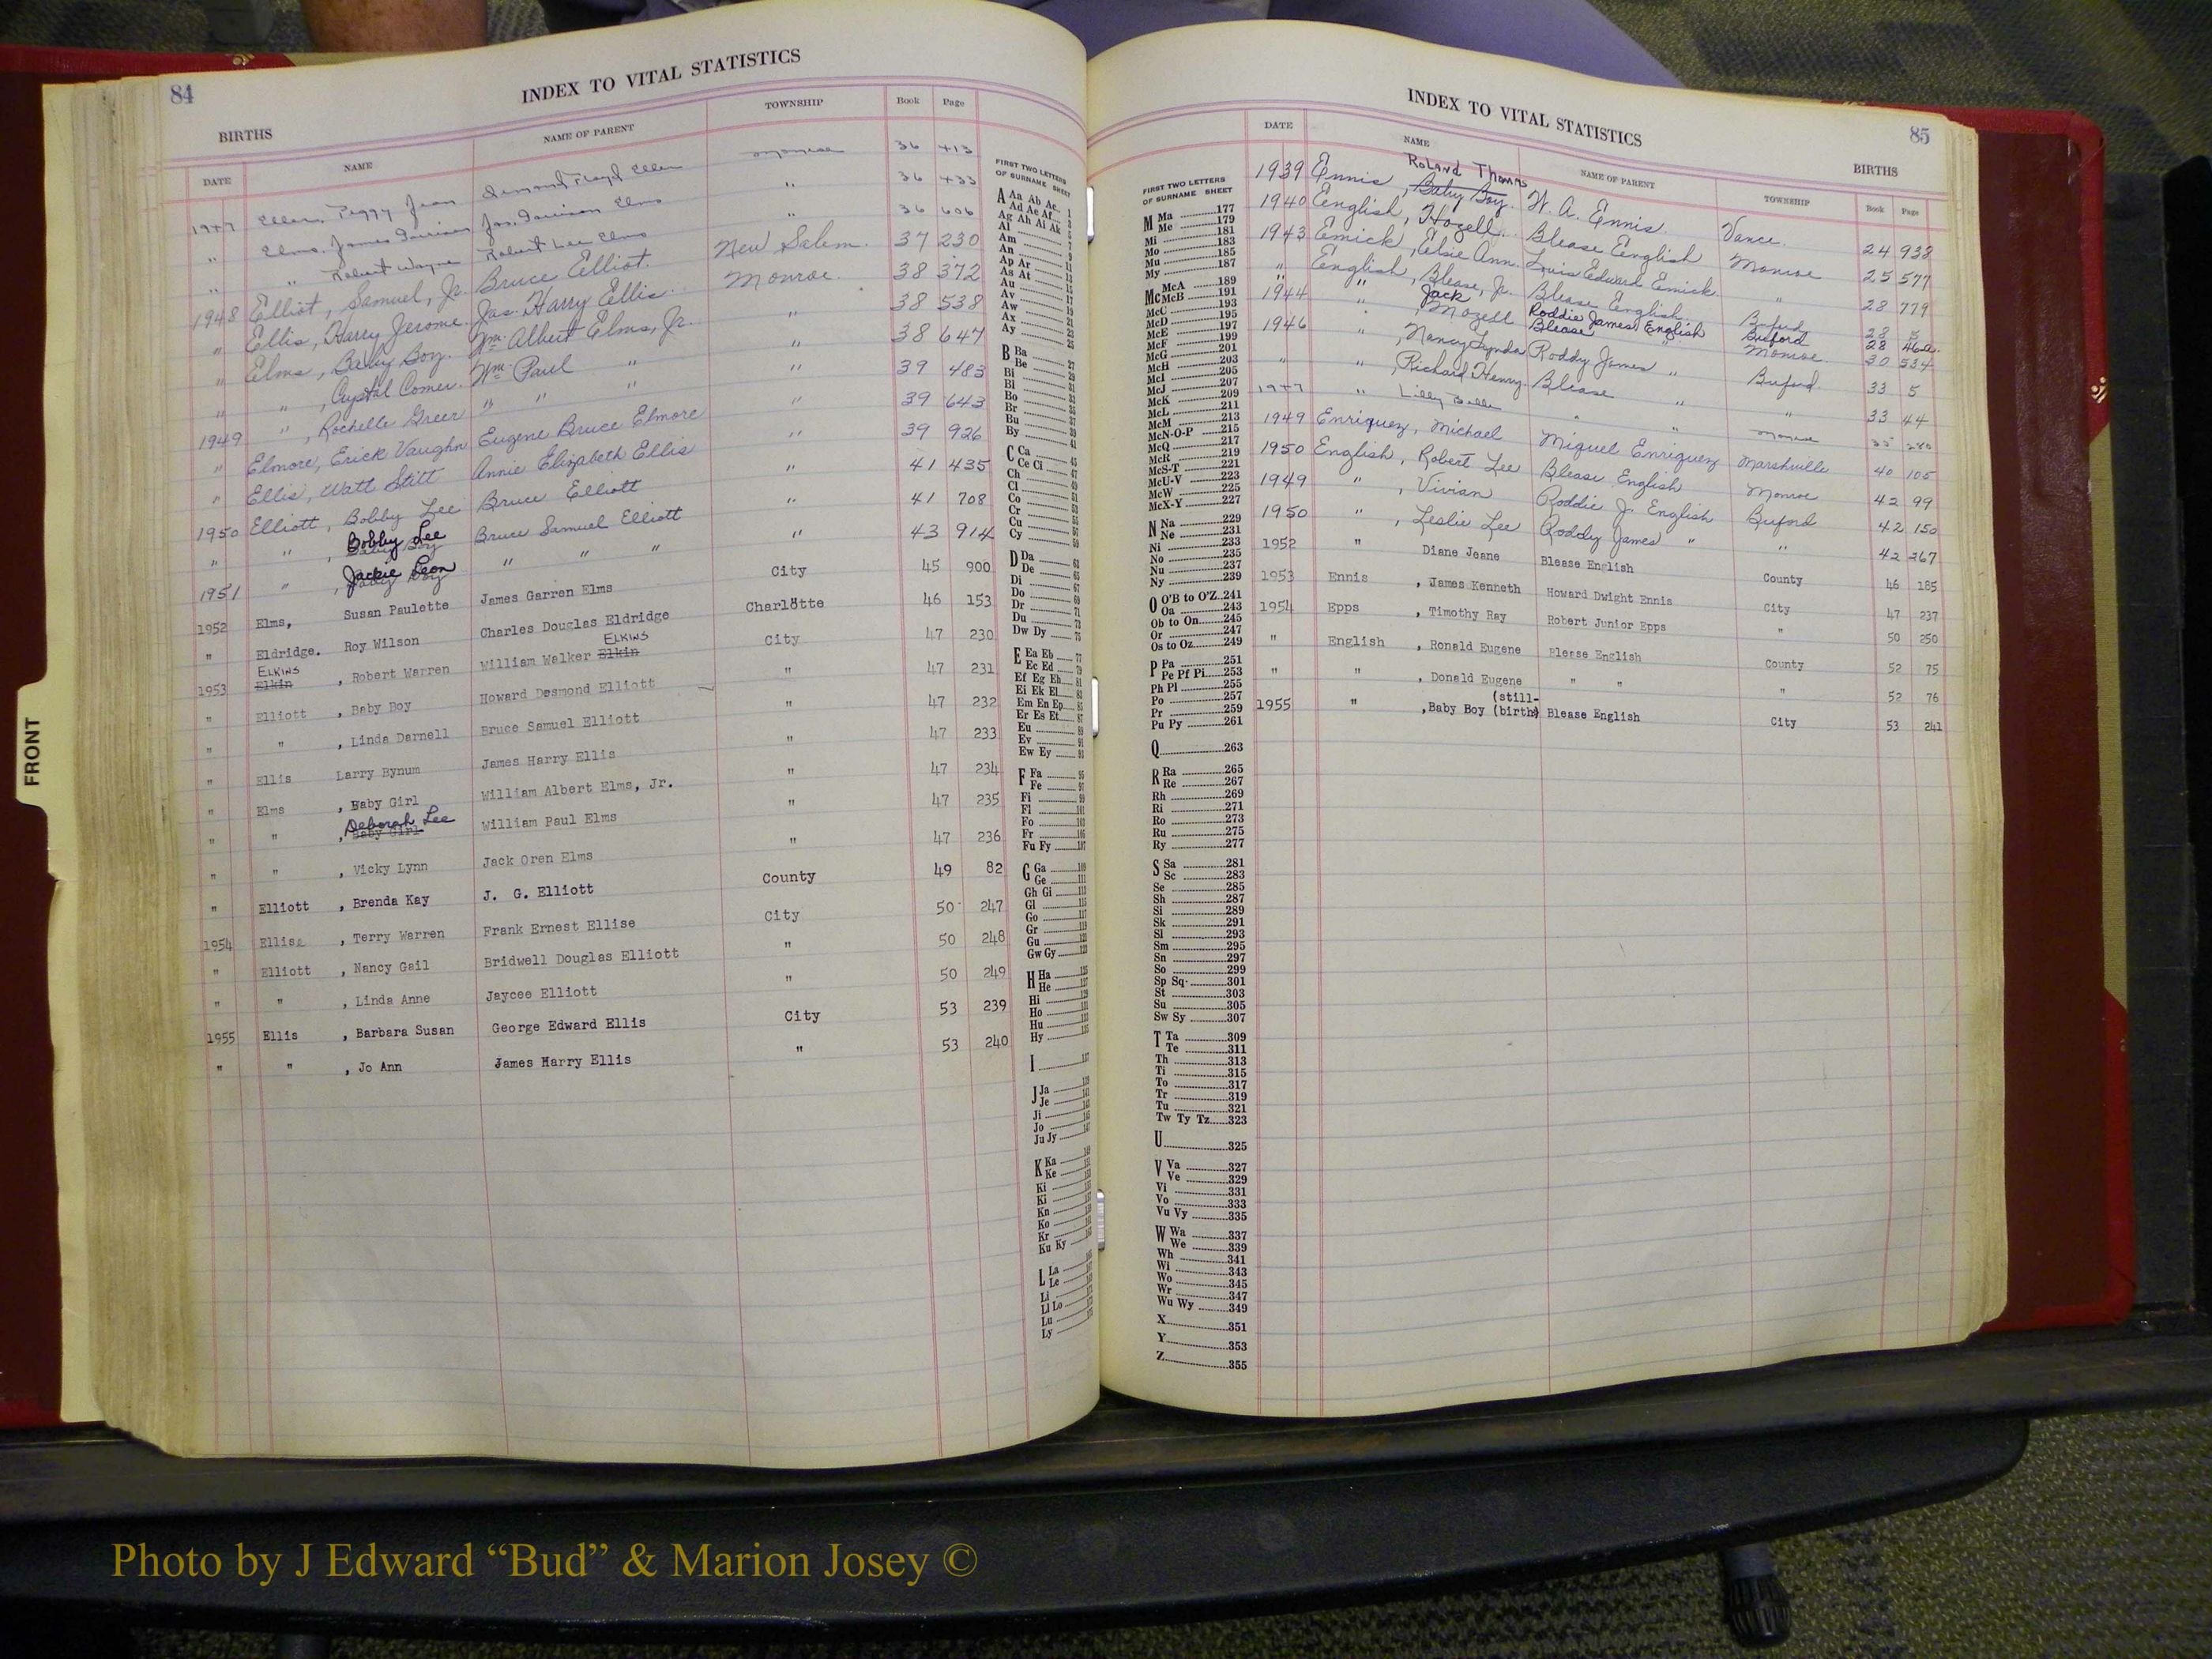 84
INDEX TO VITAL STATISTICS
BIRTHS
DATE NAME NAME OF PARENT TOWNSHIP Book Page
1947 Peggy Jean Monroe 36 413
" Elms, James " 36 433
" " Robert Wayne Robert Lee Elms " 36 606
1948 Elliot, Samuel, Jr. Bruce Elliot. New Salem. 37 230
" Ellis, Harry Jerome Jas. Harry Ellis. Monroe. 38 372
" Elms, Baby Boy. Wm. Albert Elms, Jr. " 38 538
" " , Crystal Comer. Wm. Paul " " 38 647
1949 " , Rochelle Greer " " " " 39 483
" Elmore, Erick Vaughn Eugene Bruce Elmore " 39 643
" Ellis, Watt Stitt Annie Elizabeth Ellis " 39 926
1950 Elliott, Bobby Lee Bruce Elliott " 41 435
" " , Bobby Lee Baby Boy Bruce Samuel Elliott " 41 708
1951 " , Jackie Leon Baby Boy " " " " 43 914
1952 Elms, Susan Paulette James Garren Elms City 45 900
" Eldridge. Roy Wilson Charles Douglas Eldridge Charlotte 46 153
1953 ELKINS Elkin , Robert Warren William Walker Elkin ELKINS City 47 230
" Elliott , Baby Boy Howard Desmond Elliott " 47 231
" " , Linda Darnell Bruce Samuel Elliott " 47 232
" Ellis Larry Bynum James Harry Ellis " 47 233
" Elms , Baby Girl William Albert Elms, Jr. " 47 234
" " , Deborah Lee Baby Girl William Paul Elms " 47 235
" " , Vicky Lynn Jack Oren Elms " 47 236
" Elliott , Brenda Kay J. G. Elliott County 49 82
1954 Ellise , Terry Warren Frank Ernest Ellise City 50 247
" Elliott , Nancy Gail Bridwell Douglas Elliott " 50 248
" " , Linda Anne Jaycee Elliott " 50 249
1955 Ellis , Barbara Susan George Edward Ellis City 53 239
" " , Jo Ann James Harry Ellis " 53 240
FIRST TWO LETTERS
OF SURNAME SHEET
A Aa Ab Ac 1
Ad Ae Af 3
Ag Ah Ai Ak 5
Al 7
Am 9
An 11
Ap Ar 13
As At 15
Au 17
Av 19
Aw 21
Ax 23
Ay 25
B Ba 27
Be 29
Bi 31
Bl 33
Bo 35
Br 37
Bu 39
By 41
C Ca 43
Ce Ci 47
Ch 49
Cl 51
Co 53
Cr 55
Cu 57
Cy 59
D Da 63
De 65
Di 67
Do 69
Dr 71
Du 73
Dw Dy 75
E Ea Eb 77
Ec Ed 79
Ef Eg Eh 81
Ei Ek El 83
Em En Ep 85
Er Es Et 87
Eu 89
Ev 91
Ew Ey 93
F Fa 95
Fe 97
Fi 99
Fl 101
Fo 103
Fr 105
Fu Fy 107
G Ga 109
Ge 111
Gh Gi 113
Gl 115
Go 117
Gr 119
Gu 121
Gw Gy 123
H Ha 125
He 127
Hi 129
Ho 131
Hu 133
Hy 135
I 137
J Ja 139
Je
Ji
Jo
Ju Jy
K Ka
Ke
Ki
Kn
Ko
Kr
Ku Ky
L La
Le
Li
Ll Lo
Lu
Ly
INDEX TO VITAL STATISTICS
85
BIRTHS
DATE NAME NAME OF PARENT TOWNSHIP Book Page
1939 Ennis, Baby Boy. Roland Thomas W. A. Ennis. Vance. 24 938
1940 English, Hozell. Blease English Monroe 25 577
1943 Emick, Elsie Ann. Louis Edward Emick. " 28 779
" English, Blease, Jr. Blease English. Buford 28 5
1944 " Jack Roddie James English Buford 28 462
" , Mozell Blease " Monroe. 30 534
1946 " , Nancy Lynda Roddy James " Buford 33 5
" " , Richard Henry. Blease " " 33 44
1947 " Lilly Belle " " Monroe 35 280
1949 Enriquez, Michael Miguel Enriquez Marshville 40 105
1950 English, Robert Lee Blease English Monroe 42 99
1949 " , Vivian Roddie J. English Buford 42 150
1950 " , Leslie Lee Roddy James " " 42 267
1952 " Diane Jeane Blease English County 46 185
1953 Ennis , James Kenneth Howard Dwight Ennis City 47 237
1954 Epps , Timothy Ray Robert Junior Epps " 50 250
" English , Ronald Eugene Blease English County 52 75
" " , Donald Eugene " " " 52 76
1955 " ,Baby Boy (still-birth) Blease English City 53 241
FIRST TWO LETTERS
OF SURNAME SHEET
M Ma 177
Me 179
Mi 181
Mo 183
Mu 185
My 187
Mc McA 189
McB 191
McC 193
McD 195
McE 197
McF 199
McG 201
McH 203
McI 205
McJ 207
McK 209
McL 211
McM 213
McN-O-P 215
McQ 217
McR 219
McS-T 221
McU-V 223
McW 225
McX-Y 227
N Na 229
Ne 231
Ni 233
No 235
Nu 237
Ny 239
O O'B to O'Z 241
Oa 243
Ob to On 245
Or 247
Os to Oz 249
P Pa 251
Pe Pf Pi 253
Ph Pl 255
Po 257
Pr 259
Pu Py 261
Q 263
R Ra 265
Re 267
Rh 269
Ri 271
Ro 273
Ru 275
Ry 277
S Sa 281
Sc 283
Se 285
Sh 287
Si 289
Sk 291
Sl 293
Sm 295
Sn 297
So 299
Sp Sq 301
St 303
Su 305
Sw Sy 307
T Ta 309
Te 311
Th 313
Ti 315
To 317
Tr 319
Tu 321
Tw Ty Tz 323
U 325
V Va 327
Ve 329
Vi 331
Vo 333
Vu Vy 335
W Wa 337
We 339
Wh 341
Wi 343
Wo 345
Wr 347
Wu Wy 349
X 351
Y 353
Z 355
FRONT
Photo by J Edward “Bud” & Marion Josey ©